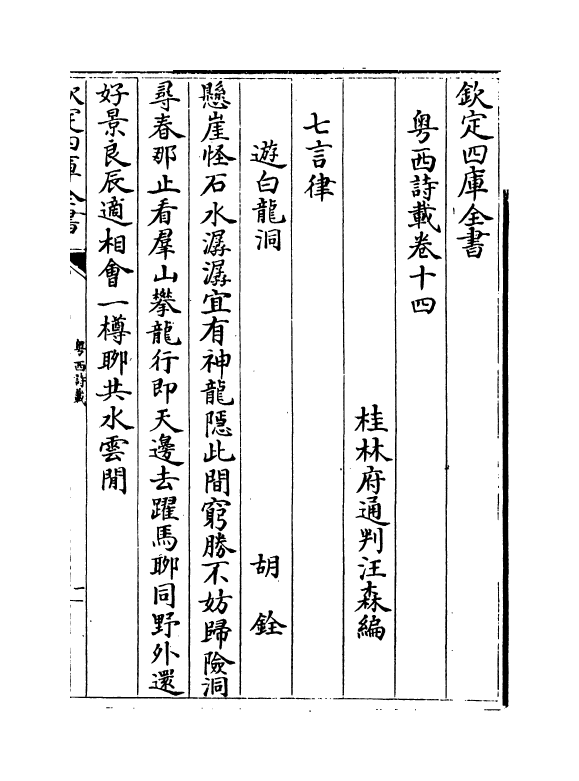 欽定四庫全書
粤西詩載卷十四
桂林府通判汪森編
七言律
遊白龍洞 胡銓
懸崖怪石水潺潺宜有神龍隱此間窮勝不妨歸險洞
尋春那止看羣山攀龍行即天邊去躍馬聊同野外還
好景良辰適相會一樽聊共水雲閒
欽定四庫全書
粤西詩載
一